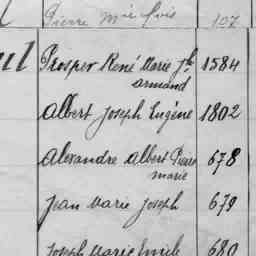 Pierre Mie Luis 107
Prosper René Marie Jh 1584
armand
albert Joseph Eugène 1802
alexandre albert Pierre 678
marie
Jean Marie Joseph 679
Joseph Marie Emile 680